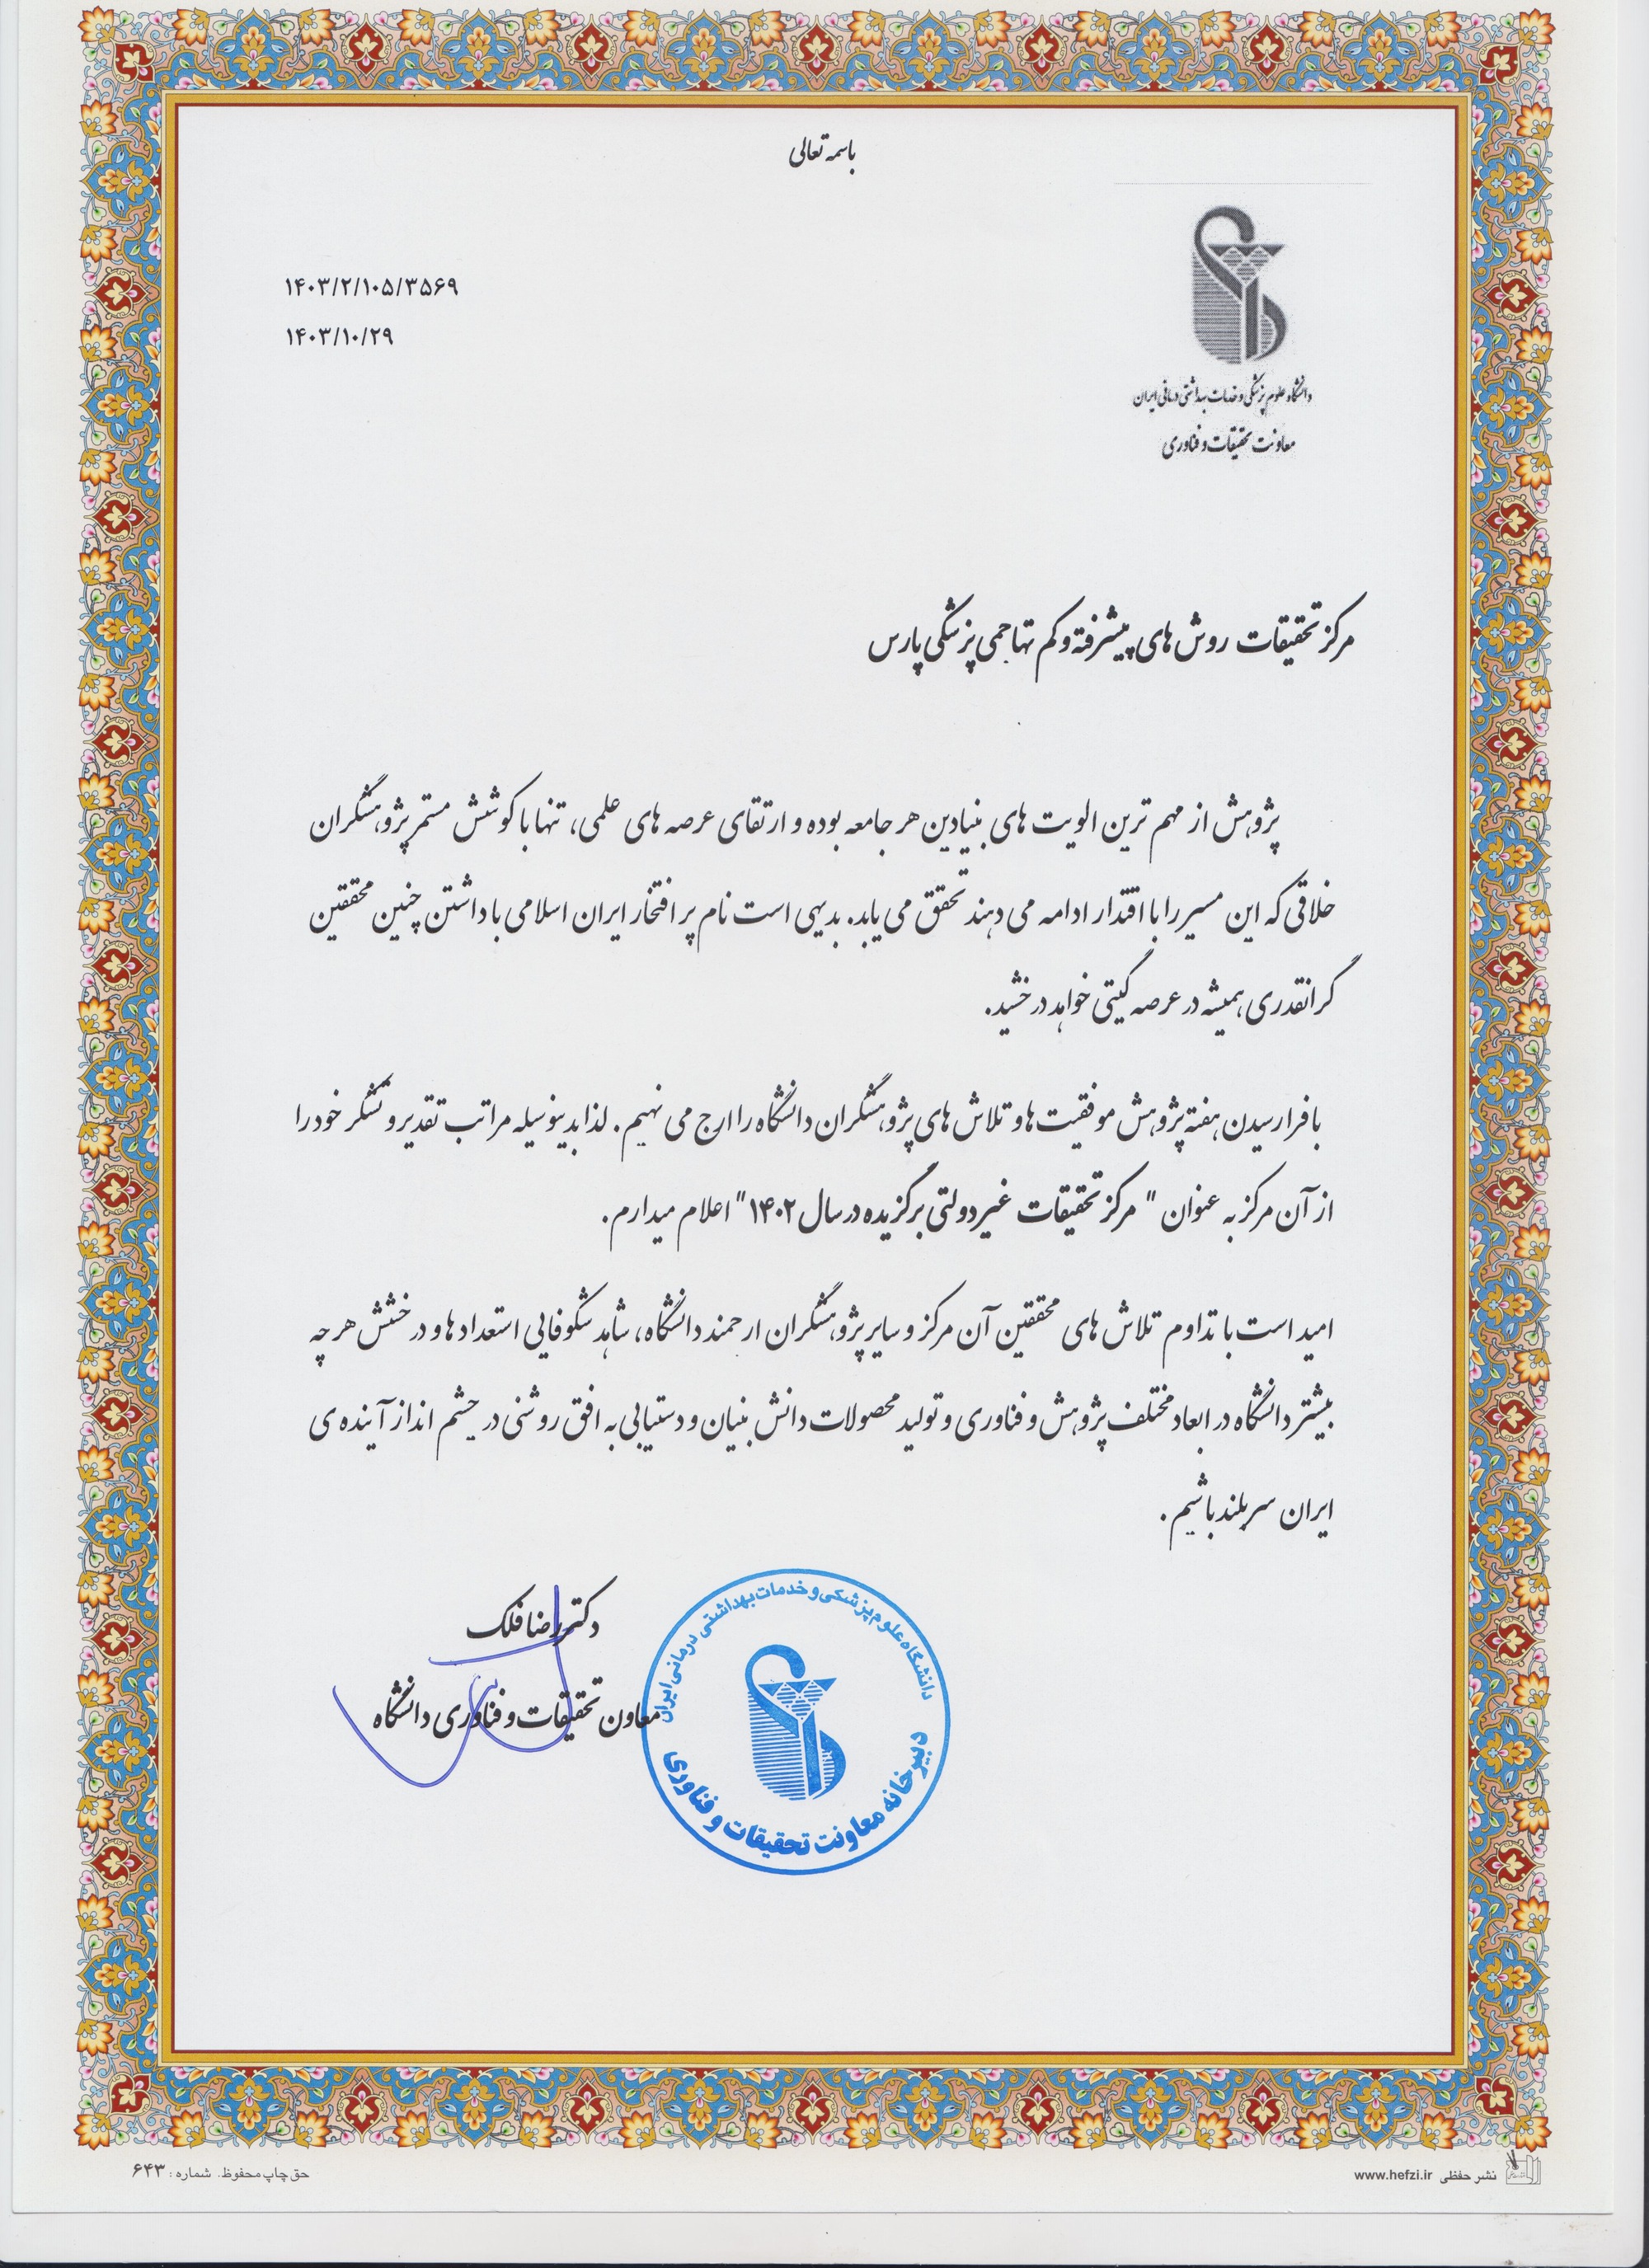 باسمه تعالی
۱۴۰۳/۲/۱۰۵/۳۵۶۹
۱۴۰۳/۱۰/۲۹
دانشگاه علوم پزشکی و خدمات بهداشتی درمانی ایران
معاونت تحقیقات و فناوری
مرکز تحقیقات روش های پیشرفته و کم تهاجمی پزشکی پارس
پژوهش از مهم ترین الویت های بنیادین هر جامعه بوده و ارتقای عرصه های علمی، تنها با کوشش مستمر پژوهشگران
خلاقی که این مسیر را با اقتدار ادامه می دهند تحقق می یابد. بدیهی است نام پر افتخار ایران اسلامی با داشتن چنین محققین
گرانقدری همیشه در عرصه گیتی خواهد درخشید.
با فرا رسیدن هفته پژوهش موفقیت ها و تلاش های پژوهشگران دانشگاه را ارج می نهیم. لذا بدینوسیله مراتب تقدیر و تشکر خود را
از آن مرکز به عنوان " مرکز تحقیقات غیر دولتی برگزیده در سال ۱۴۰۲" اعلام میدارم.
امید است با تداوم تلاش های محققین آن مرکز و سایر پژوهشگران ارجمند دانشگاه، شاهد شکوفایی استعداد ها و درخشش هر چه
بیشتر دانشگاه در ابعاد مختلف پژوهش و فناوری و تولید محصولات دانش بنیان و دستیابی به افق روشنی در چشم انداز آینده ی
ایران سربلند باشیم.
دکتر رضا فلک
معاون تحقیقات و فناوری دانشگاه
دانشگاه علوم پزشکی و خدمات بهداشتی درمانی ایران
دبیرخانه معاونت تحقیقات و فناوری
نشر حفظی www.hefzi.ir
حق چاپ محفوظ. شماره: ۶۴۳